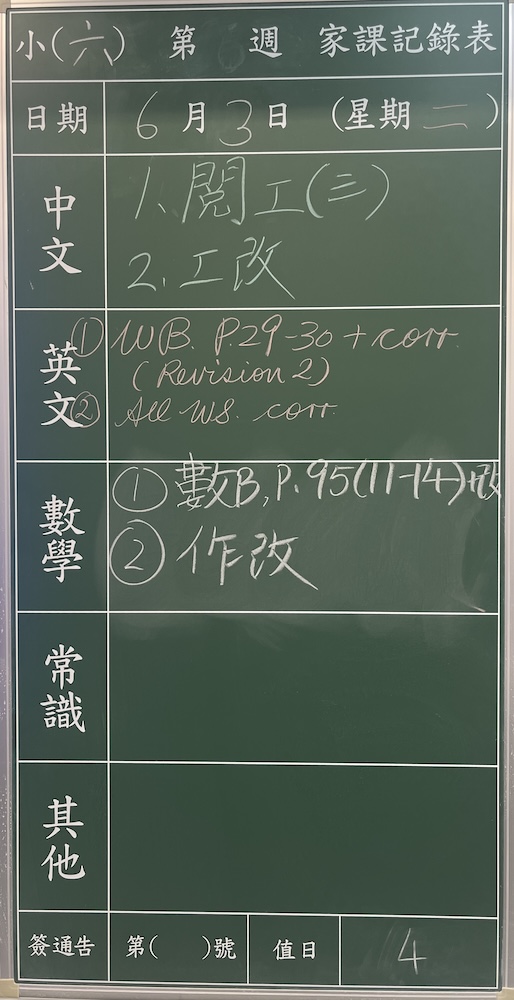 小(六) 第 週 家課記錄表
日期 6月3日 (星期二)
中文
1. 閱工(三)
2. 工改
英文
① WB. P.29-30 + corr.
(Revision 2)
② All WS. corr.
數學
① 數B, P. 95(11-14)+改
② 作改
常識
其他
簽通告 第( )號 值日 4